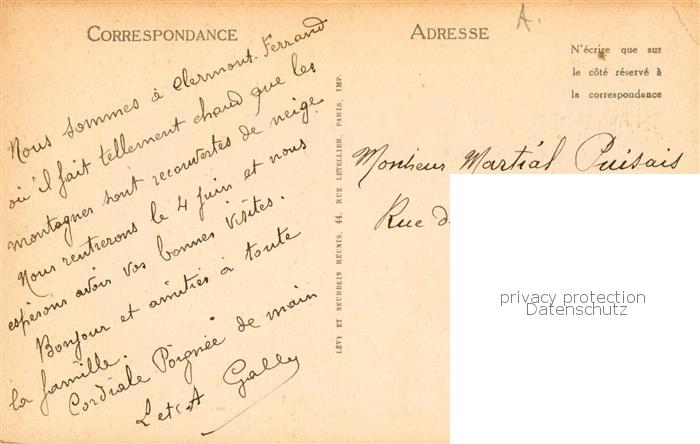 CORRESPONDANCE
Nous sommes à Clermont-Ferrand
où il fait tellement chaud que les
montagnes sont recouvertes de neige.
Nous rentrerons le 4 juin et nous
espérons avoir vos bonnes visites.
Bonjour et amitiés à toute
la famille.
Cordiale Poignée de main
L et A Gally
LÉVY ET NEURDEIN RÉUNIS, 44, RUE LETELLIER, PARIS, IMP.
A.
ADRESSE
N'écrire que sur
le côté réservé à
la correspondance
Monsieur Martial Puisais
Rue d
privacy protection
Datenschutz